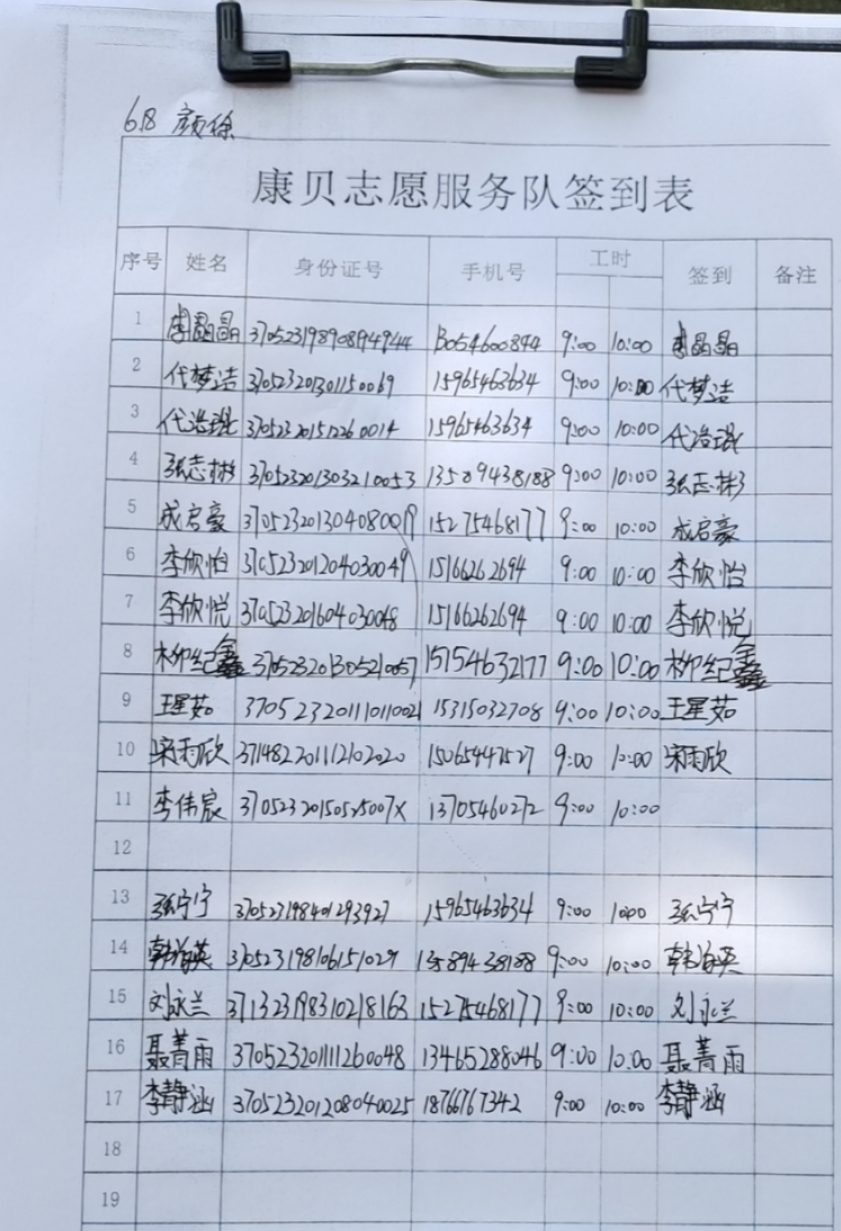 6.8 颜徐
康贝志愿服务队签到表
序号 姓名 身份证号 手机号 工时 签到 备注
1 李晶晶 9:00 10:00 李晶晶
2 代梦洁 370523201301150069 15965463634 9:00 10:00 代梦洁
3 代浩琨 370523201512260014 15965463634 9:00 10:00 代浩琨
4 张志彬 370523201303210053 13589438188 9:00 10:00 张志彬
5 成启豪 370523201304080019 15275468177 9:00 10:00 成启豪
6 李欣怡 370523201204030049 15166262694 9:00 10:00 李欣怡
7 李欣悦 370523201604030048 15166262694 9:00 10:00 李欣悦
8 柳纪鑫 370523201305210057 15154632177 9:00 10:00 柳纪鑫
9 王星茹 370523201110110021 15315032708 9:00 10:00 王星茹
10 宋雨欣 371482201112102020 15065447527 9:00 10:00 宋雨欣
11 李伟宸 37052320150525007X 13705460272 9:00 10:00
12
13 张宁宁 370523198401293927 15965463634 9:00 10:00 张宁宁
14 韩海英 370523198106151027 13589438188 9:00 10:00 韩海英
15 刘永兰 371323198310218163 15275468177 9:00 10:00 刘永兰
16 聂菁雨 370523201111260048 13465288046 9:00 10:00 聂菁雨
17 李静涵 370523201208040025 18766767342 9:00 10:00 李静涵
18
19